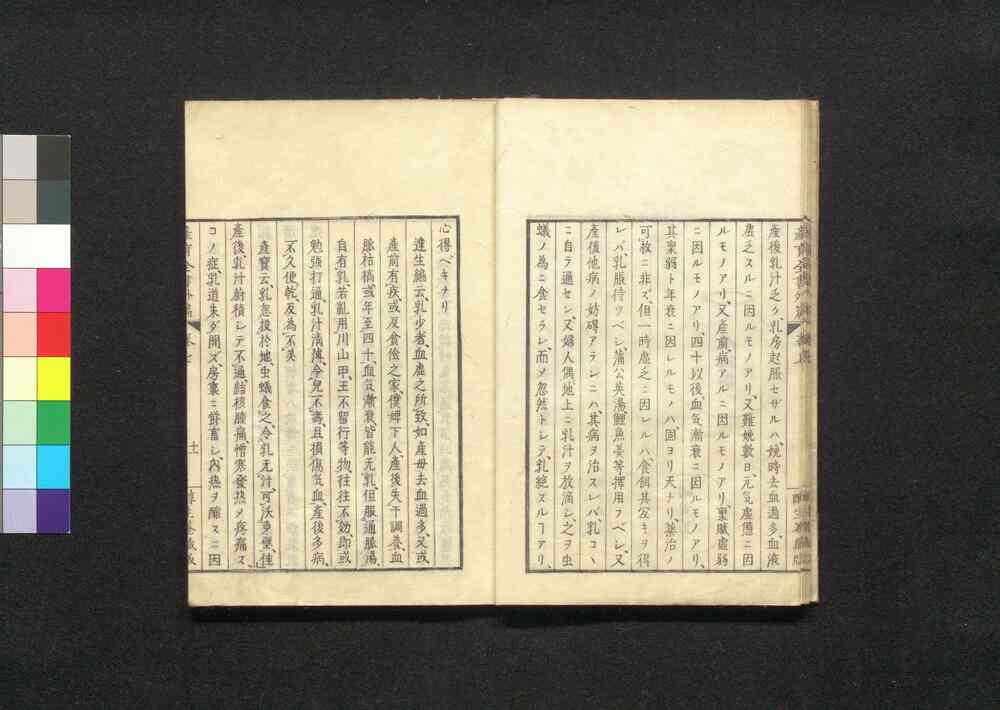 産後乳汁乏ク乳房起脹セザルハ、娩時去血過多、血液
虚乏スルニ因ルモノアリ、又難娩数日、元気虚憊ニ因
ルモノアリ、又産前病アルニ因ルモノアリ、稟賦虚弱
ニ因ルモノアリ、四十以後、血気漸衰ニ因ルモノアリ、
其稟弱ト年衰ニ因レルモノハ、固ヨリ天ナリ、薬治ノ
可救ニ非ズ、但一時虚乏ニ因レルハ、食餌其宜キヲ得
レバ、乳脹待ツベシ、蒲公英湯、鯉魚羹等撰用フベシ、又
産後他病ノ妨碍アラシニハ、其病ヲ治スレバ、乳コヽ
ニ自ラ通セシ、又婦人偶地上ニ乳汁ヲ放滴シ、之ヲ虫
蟻ノ為ニ食セラレ、而メ忽然トシテ、乳絶スルヿアリ、
心得ベキナリ
達生編云、乳少者、血虚之所致、如産母去血過多、又或
産前有疾、或反食倹之家、僕婢下人、産後失于調養、血
脈枯槁、或年至四十、血気漸衰、皆能无乳、但服通脈湯、
自有乳、若乱用川山甲、王不留行等物、往往不効、即或
勉強打通、乳汁清薄、令児不寿、且損傷気血、産後多病、
不久便乾、反為不美
産宝云、乳忽投於地、虫蟻食之、令乳无汁、可沃東壁佳、
産後乳汁蔚積シテ不通、結核腫痛、憎寒発熱メ疼痛ス、
コノ症、乳道未ダ開ズ、房嚢ニ餘蓄シ、内熱ヲ醸スニ因
十一